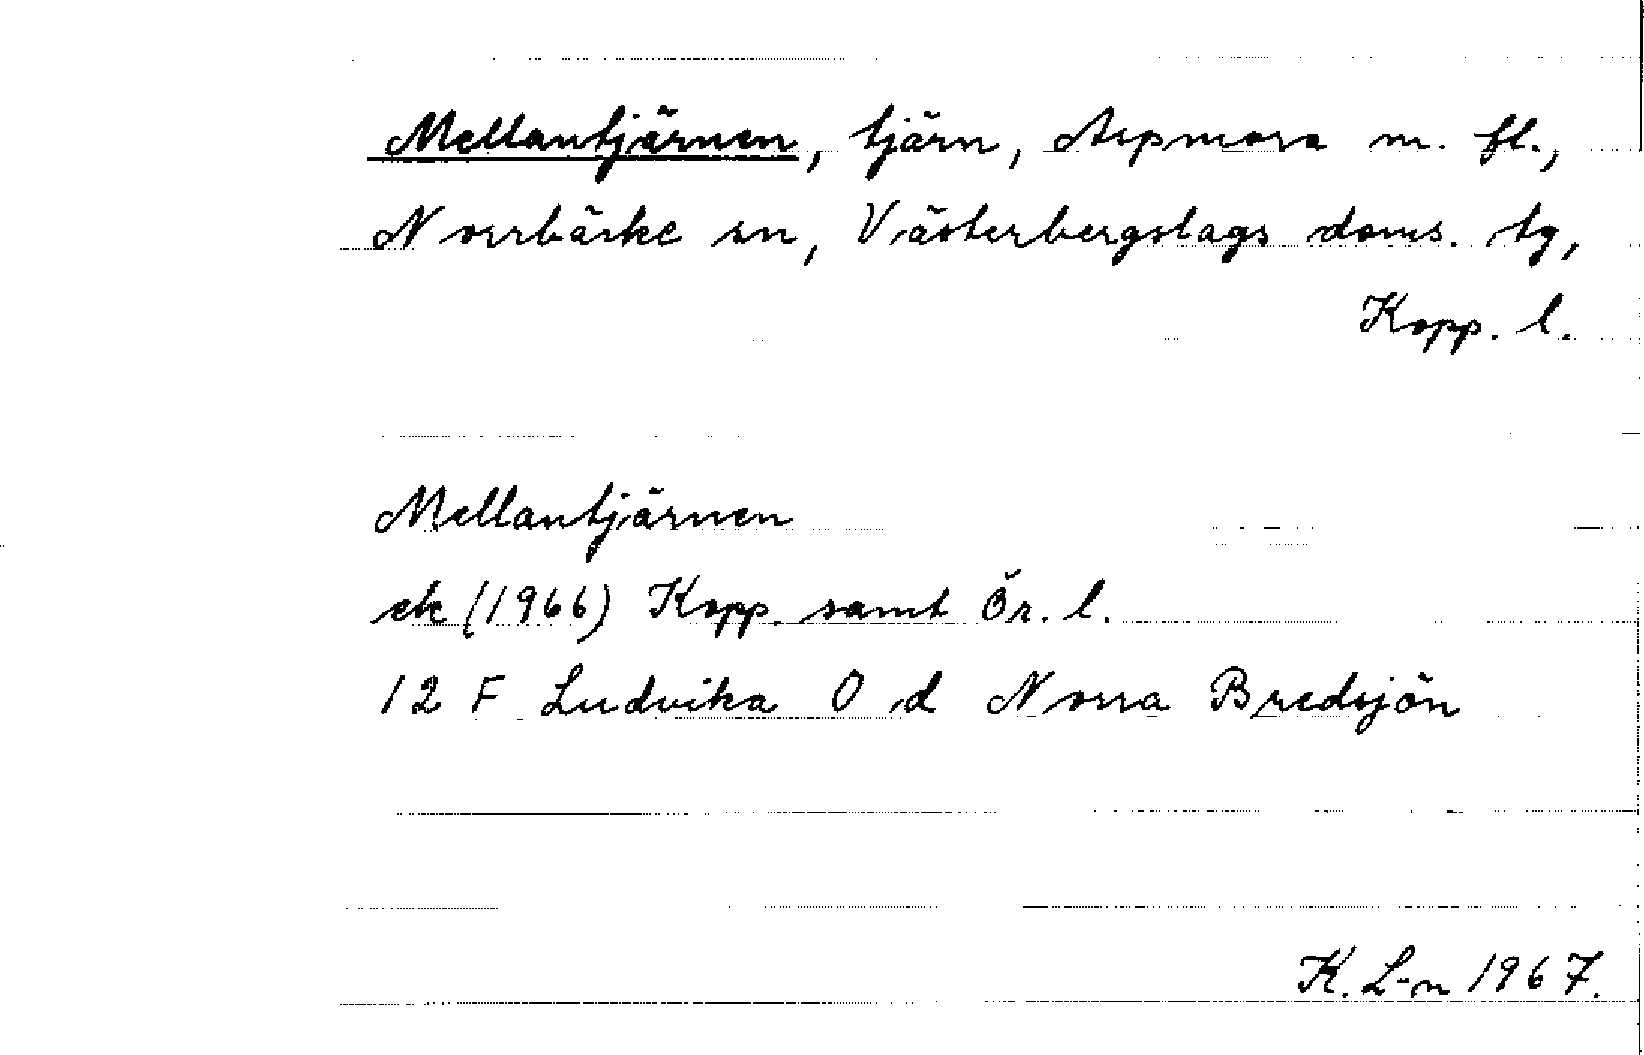 Mellantjärnen, tjärn, Aspmora m. fl.,
Norrbärke sn, Västerbergslags doms. tg,
Kopp. l.
Mellantjärnen
ek (1966) Kopp. samt Ör. l.
12 F Ludvika 0 d Norra Bredsjön
K. L-n 1967.